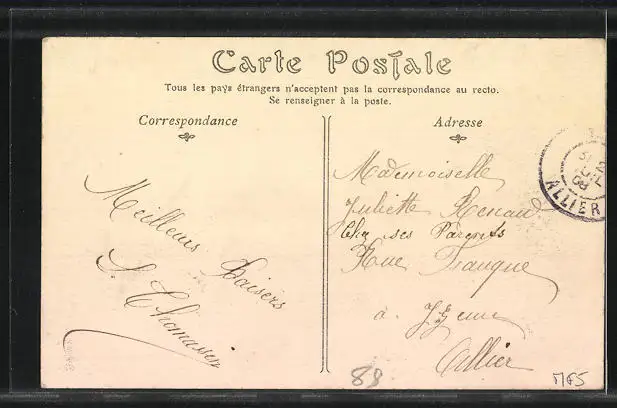 Carte Postale
Tous les pays étrangers n'acceptent pas la correspondance au recto.
Se renseigner à la poste.
Correspondance
Meilleurs Baisers
S. Thomassin
Adresse
Mademoiselle
Juliette Renaud
Chez ses Parents
Rue
à
Allier
ALLIER
88
M65